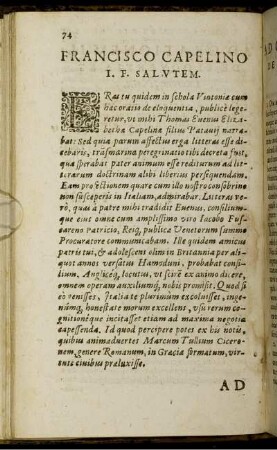 74
FRANCISCO CAPELINO
I. F. SALVTEM.
ERas tu quidem in schola Vintonia cum
hæc oratio de eloquentia, publicè lege-
retur, vt mihi Thomas Euenus Eliza-
bethæ Capelinæ filius Patauij narra-
bat: Sed quia parum affectus erga litteras esse di-
cebaris, trãsmarina peregrinatio tibi decreta fuit,
qua sperabat pater animum esse rediturum ad lit-
terarum doctrinam alibi liberius persequendam.
Eam profectionem quare cum illo nostro consobrino
non susceperis in Italiam, admirabar. Litteras ve-
rò, quas à patre mihi tradidit Euenus, consiliumq́-
que eius omne cum amplissimo viro Iacobo Fus-
careno Patricio, Reiq́, publicæ Venetorum summo
Procuratore communicabam. Ille quidem amicus
patris tui, & adolescens olim in Britannia per ali-
quot annos versatus Hamsduni, probabat consi-
lium. Angliceq́, locutus, vt scirẽ ex animo dicere,
omnem operam auxiliumq́, nobis promisit. Quod si
eò venisses, Italia te plurimum excoluisses, inge-
niumq́, honestate morum excellens, vsu rerum co-
gnitioneque incitasset etiam ad maxima negotia
capessenda. Id quod percipere potes ex his notis,
quibus animaduertes Marcum Tullium Cicero-
nem, genere Romanum, in Græcia formatum, vir-
tute ciuibus præluxisse.
AD